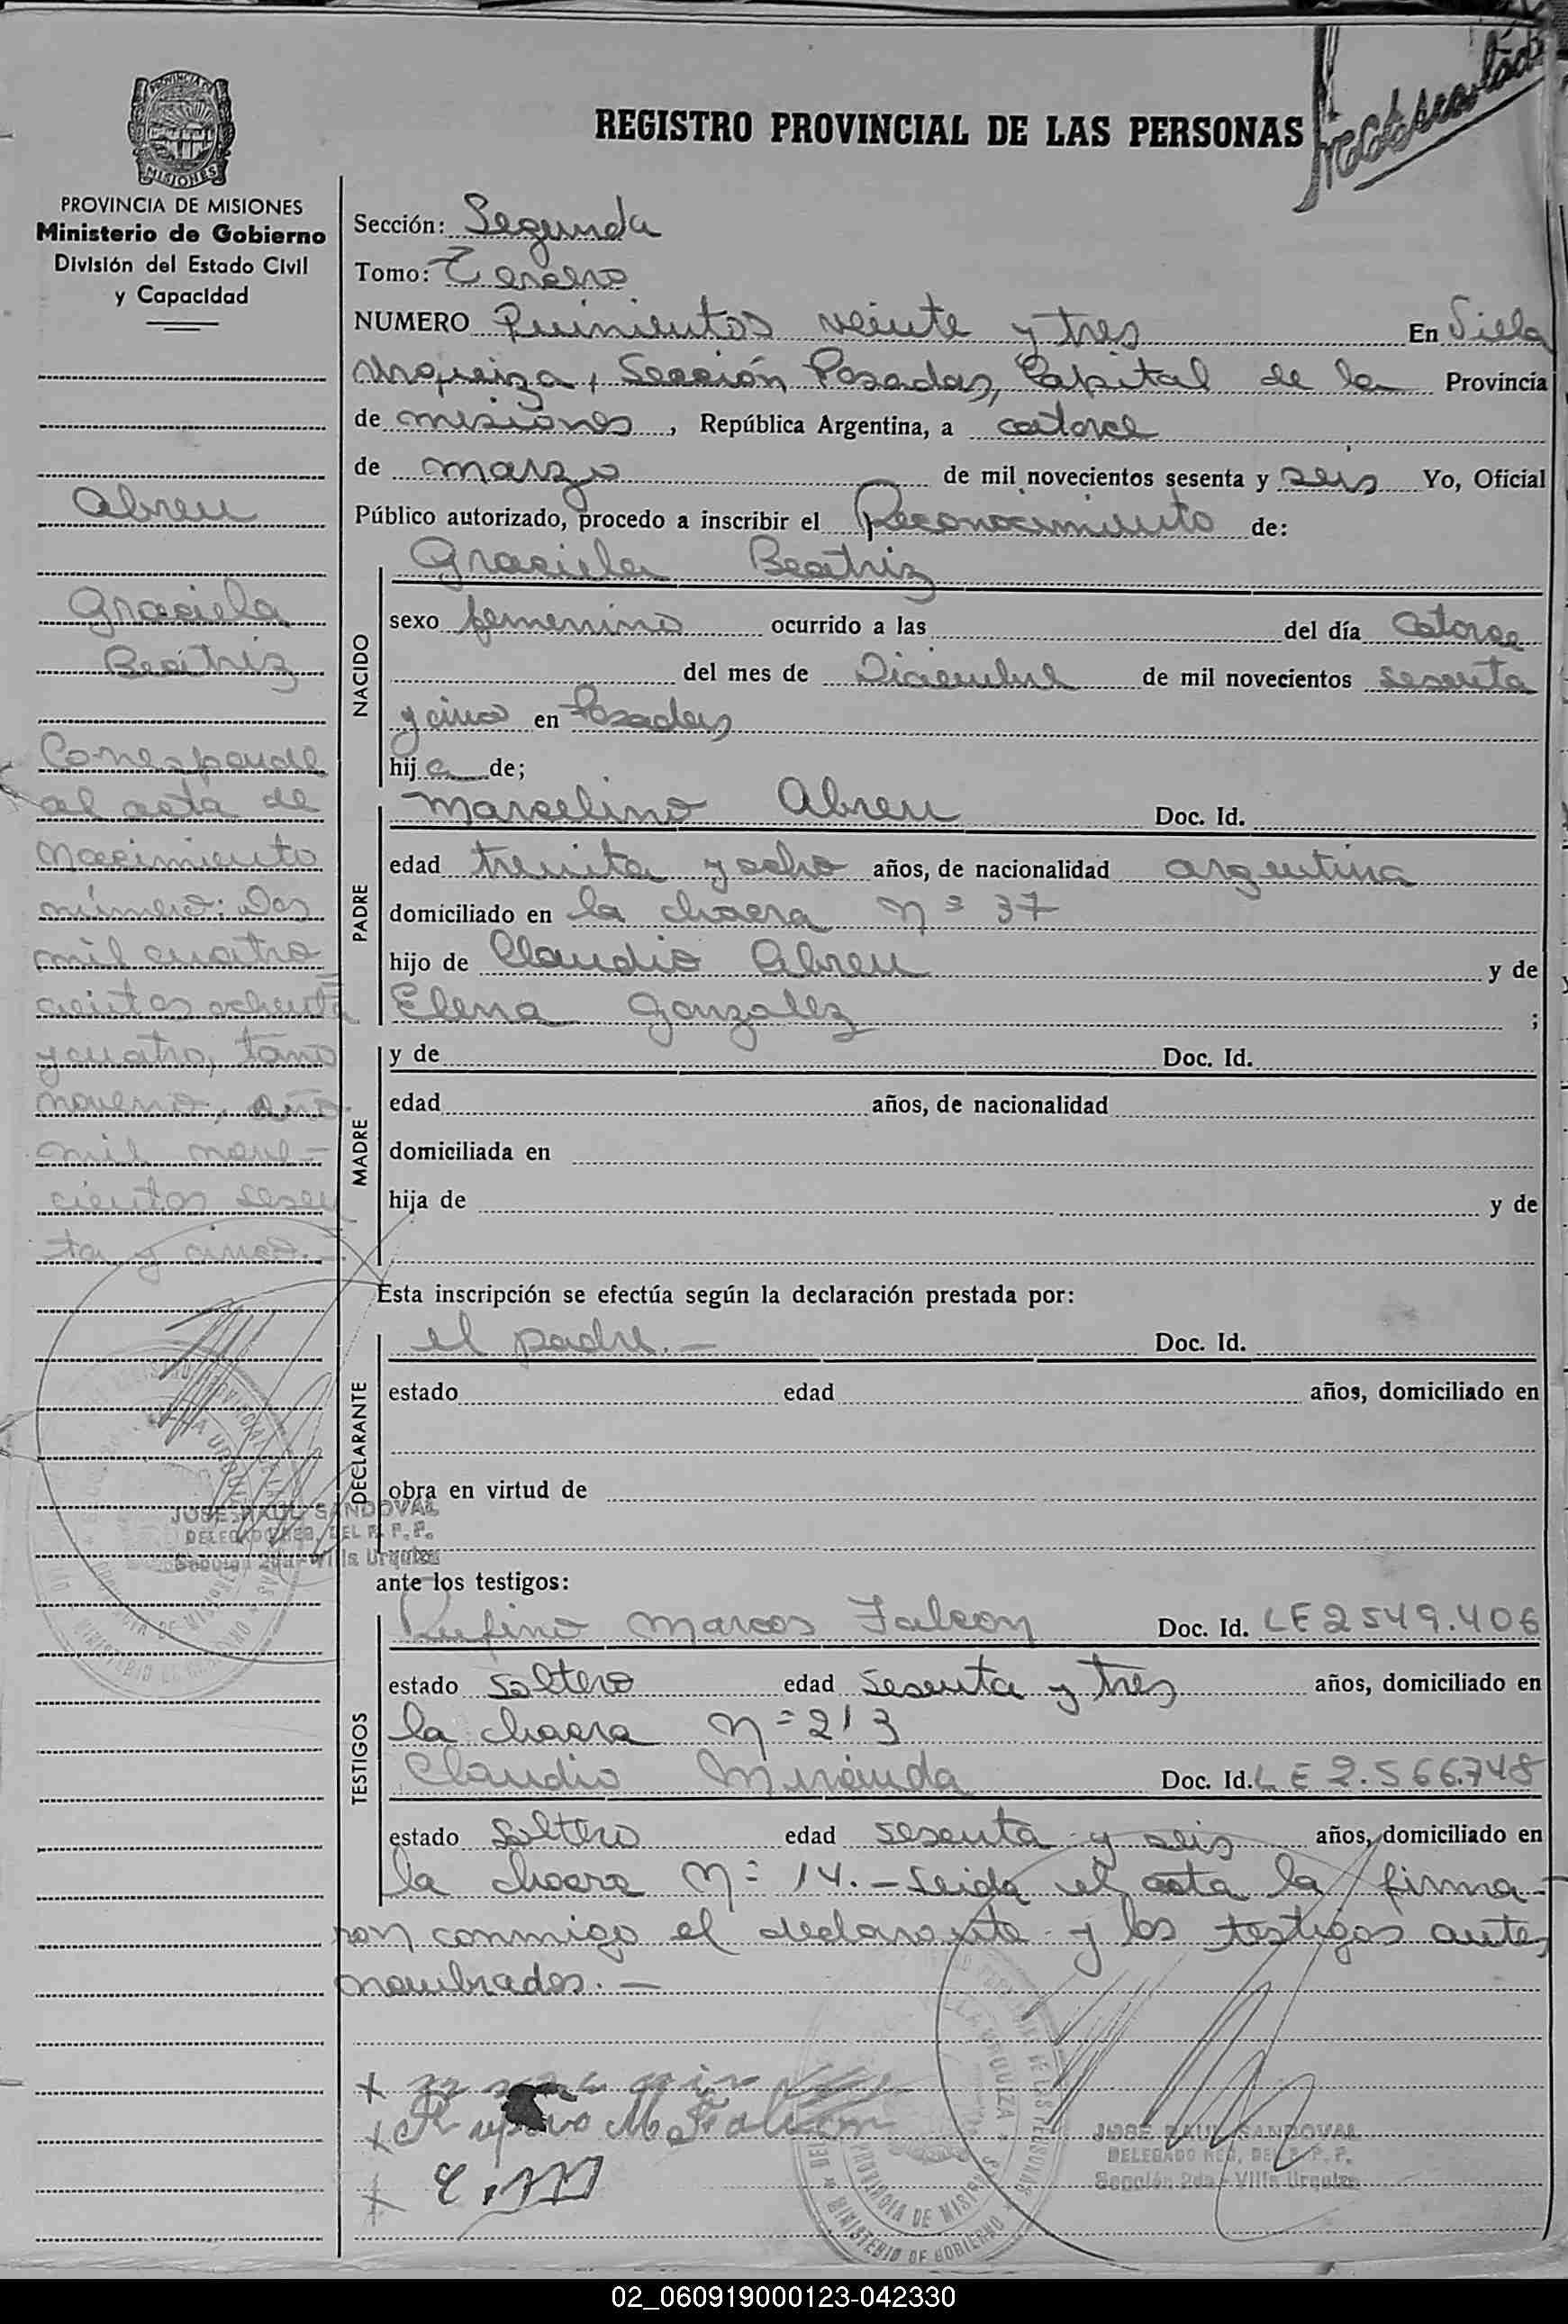 REGISTRO PROVINCIAL DE LAS PERSONAS
PROVINCIA DE MISIONES
Ministerio de Gobierno
División del Estado Civil
y Capacidad
Abreu
Graciela
Beatriz
Corresponde
al acta de
Nacimiento
número: Dos
mil cuatro
cientos ochenta
y cuatro, tomo
noveno, año
mil nove-
cientos sesen
ta y cinco.-
JOSE RAUL SANDOVAL
DELEGADO REG. DEL R. P. P.
Sección 2da - Villa Urquiza
Sección: Segunda
Tomo: Tercero
NUMERO Quinientos veinte y tres En Villa
Urquiza, Sección Posadas, Capital de la Provincia
de misiones, República Argentina, a catorce
de marzo de mil novecientos sesenta y seis Yo, Oficial
Público autorizado, procedo a inscribir el Reconocimiento de:
NACIDO
Graciela Beatriz
sexo femenino ocurrido a las del día Catorce
del mes de Diciembre de mil novecientos sesenta
y cinco en Posadas
hij a de;
PADRE
Marcelino Abreu Doc. Id.
edad treinta y ocho años, de nacionalidad argentina
domiciliado en la chacra Nº 37
hijo de Claudio Abreu y de
Elena Gonzalez ;
MADRE
y de Doc. Id.
edad años, de nacionalidad
domiciliada en
hija de y de
Esta inscripción se efectúa según la declaración prestada por:
DECLARANTE
el padre.- Doc. Id.
estado edad años, domiciliado en
obra en virtud de
ante los testigos:
TESTIGOS
Rufino Marcos Falcon Doc. Id. LE 2549.406
estado soltero edad sesenta y tres años, domiciliado en
la chacra Nº 213
Claudio Miranda Doc. Id. LE 2.566.748
estado soltero edad sesenta y seis años, domiciliado en
la chacra Nº 14.- Leida el acta la firma-
ron conmigo el declarante y los testigos antes
nombrados.-
M. Falcon
JOSE RAUL SANDOVAL
DELEGADO REG. DEL R. P. P.
Sección 2da - Villa Urquiza
02_060919000123-042330